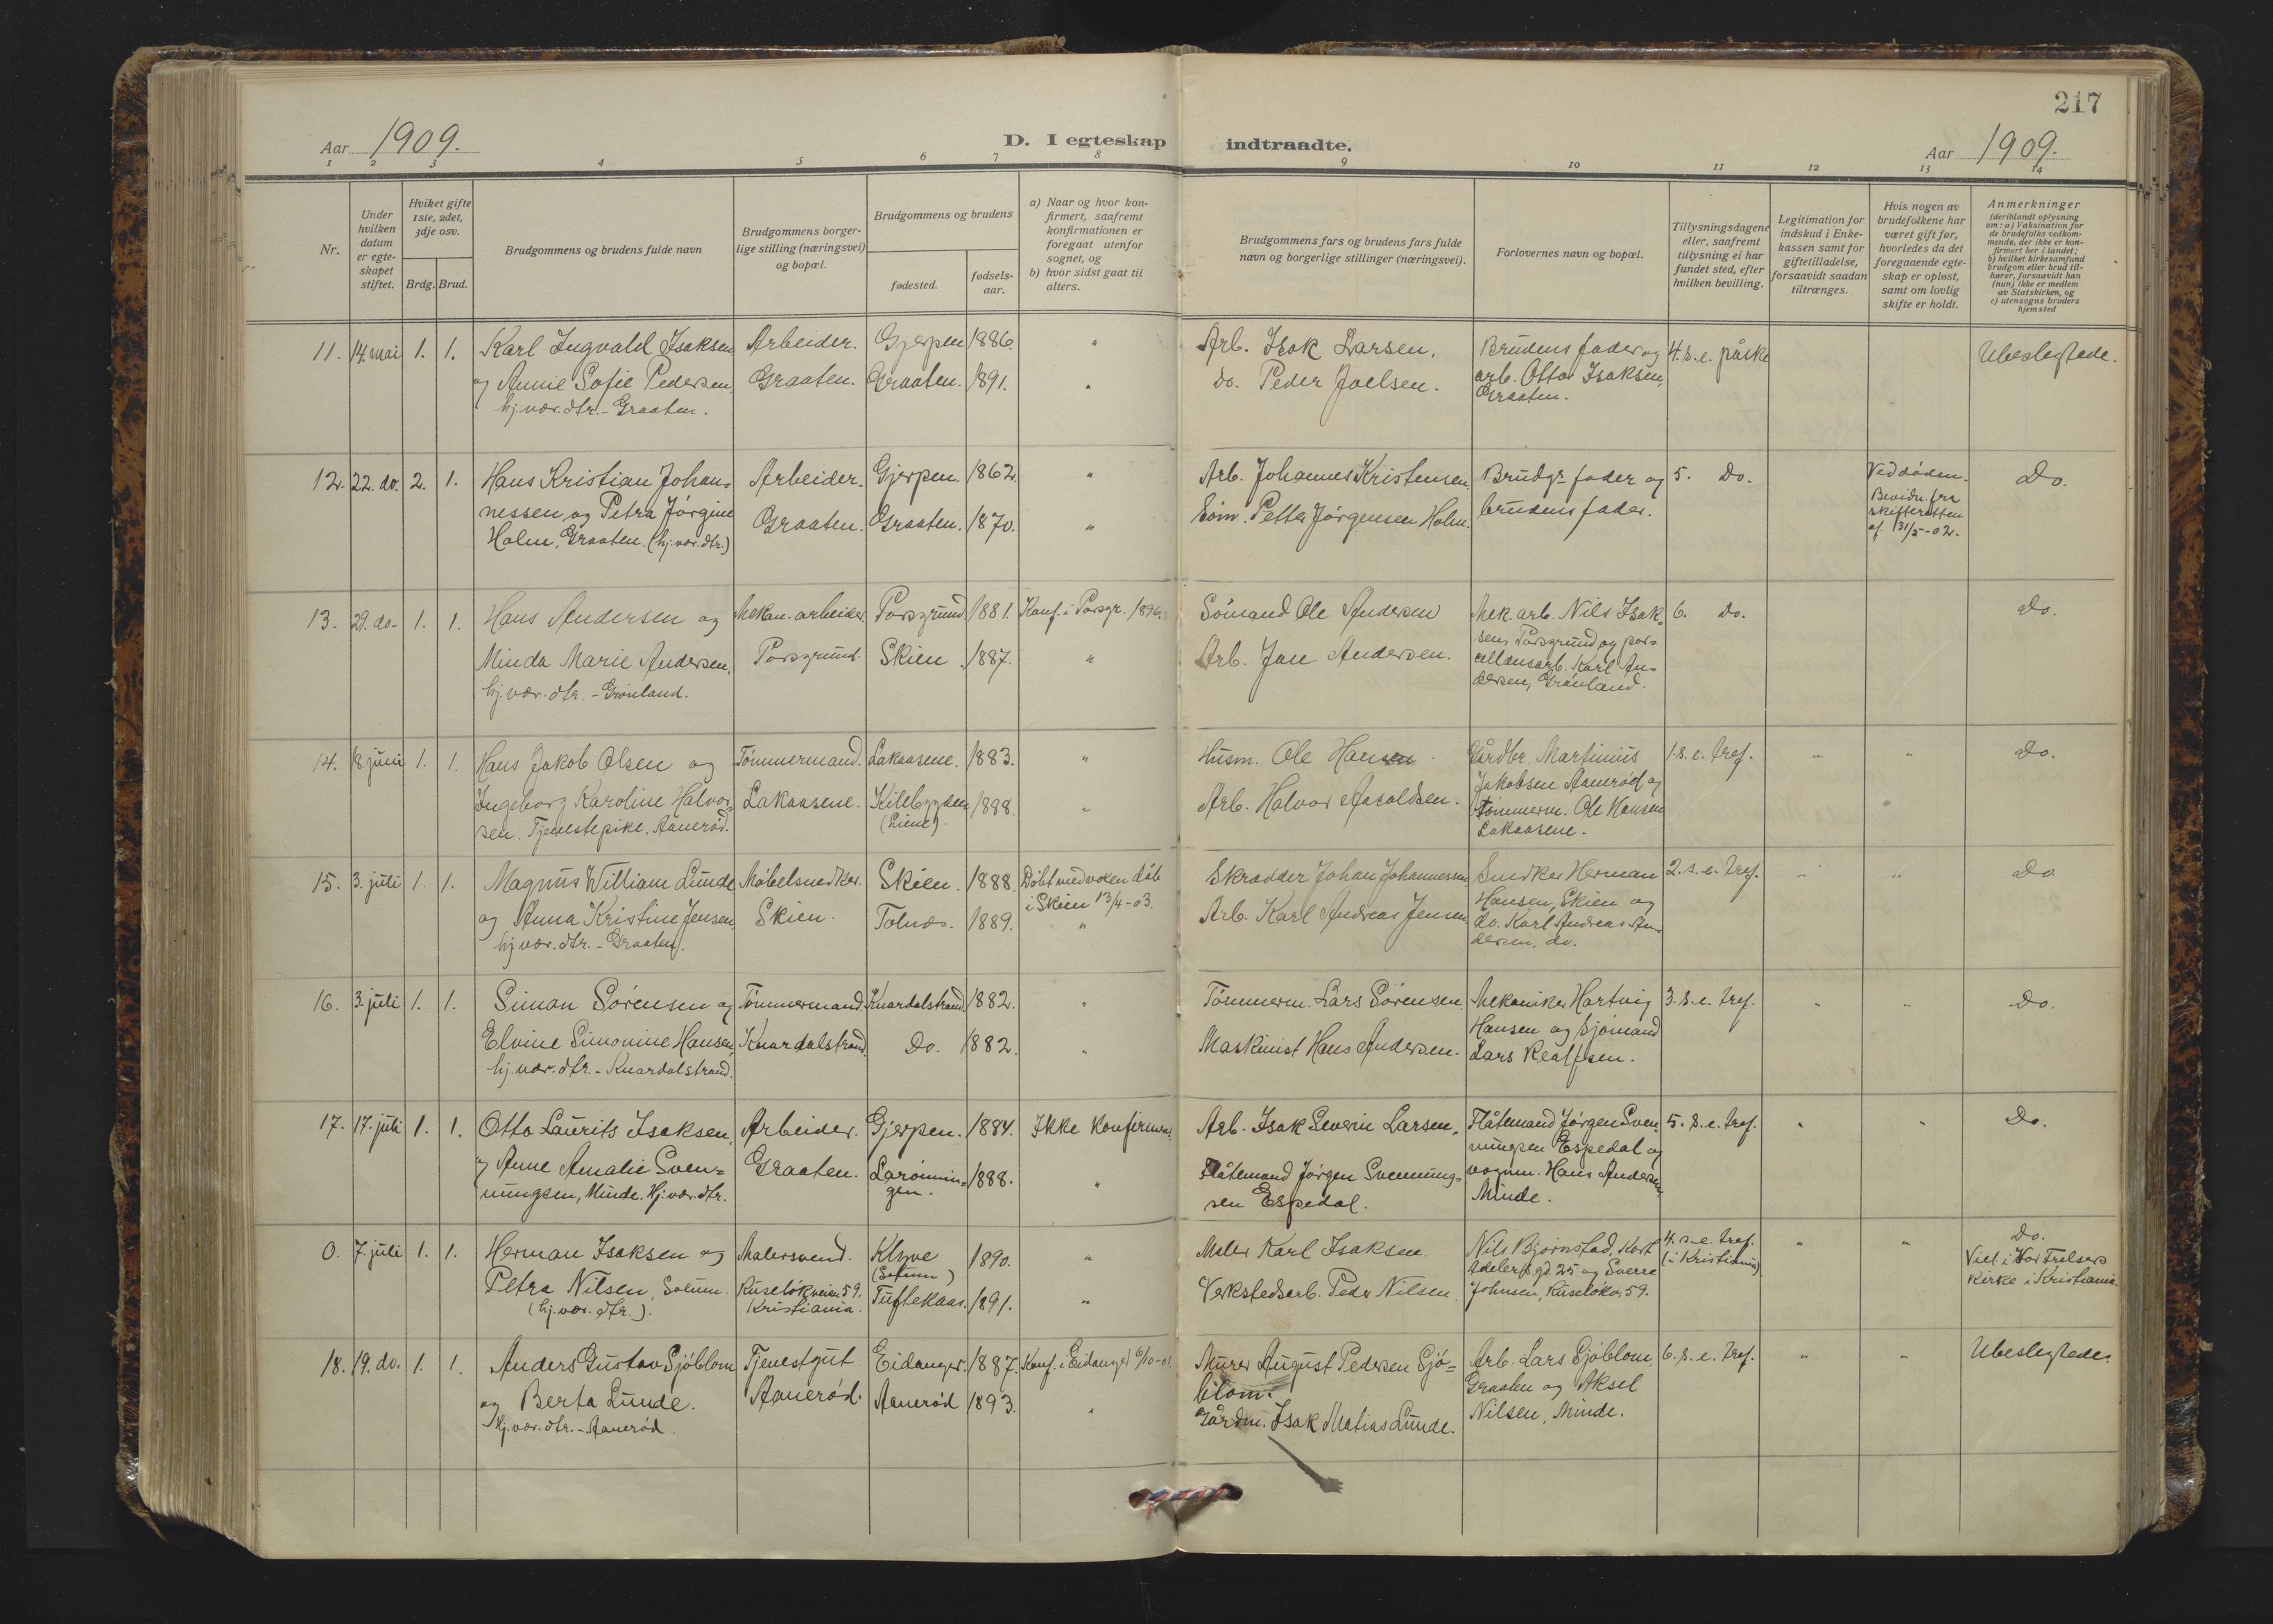 217
Aar 1909.
D. I egteskap indtraadte.
Aar 1909.
1 2 3 4 5 6 7 8 9 10 11 12 13 14
Nr.
Under hvilken datum er egteskapet stiftet.
Hviket gifte 1ste, 2det, 3dje osv.
Brdg. Brud.
Brudgommens og brudens fulde navn
Brudgommens borgerlige stilling (næringsvei) og bopæl.
Brudgommens og brudens
fødested.
fødselsaar.
a) Naar og hvor konfirmert, saafremt konfirmationen er foregaat utenfor sognet, og
b) hvor sidst gaat til alters.
Brudgommens fars og brudens fars fulde navn og borgerlige stillinger (næringsvei).
Forlovernes navn og bopæl.
Tillysningsdagene eller, saafremt tillysning ei har fundet sted, efter hvilken bevilling.
Legitimation for indskud i Enkekassen samt for giftetilladelse, forsaavidt saadan tiltrænges.
Hvis nogen av brudefolkene har været gift før, hvorledes da det foregaaende egteskap er opløst, samt om lovlig skifte er holdt.
Anmerkninger
(deriblandt oplysning om: a) Vaksination for de brudefolks vedkommende, der ikke er konfirmert her i landet; b) hvilket kirkesamfund brudgom eller brud tilhører, forsaavidt han (hun) ikke er medlem av Statskirken, og c) utensogns bruders hjemsted
11. 14. mai 1. 1. Karl Ingvald Isaksen Arbeider. Gjerpen 1886. " Arb. Isak Larsen. Brudens fader og 4. s. e. påske Ubeslegtede.
og Annie Sofie Pedersen, Graaten. Graaten. 1891. " do. Peder Joelsen. arb. Otto Isaksen,
hj.vær. dtr. - Graaten. Graaten.
12. 22. do. 2. 1. Hans Kristian Johan= Arbeider. Gjerpen. 1862. " Arb. Johannes Kristensen. Brudg.s fader og 5. Do. Ved døden. Do.
nessen, og Petra Jørgine Graaten. Graaten. 1870. " Søm. Petter Jørgensen Holm. brudens fader. Bevidn. fra
Holm, Graaten. (hj.vær. dtr.) skifteretten
af 31/5-02.
13. 29. do. 1. 1. Hans Andersen og Mekan. arbeider. Porsgrund 1881. Konf. i Porsgr. 1896. Sømand Ole Andersen Mek. arb. Nils Isak= 6. Do. Do.
Minda Marie Andersen, Porsgrund. Skien 1887. " Arb. Jan Andersen. sen, Porsgrund og por=
hj.vær. dtr. - Grønland. cellænsarb. Karl An=
dersen, Grønland.
14. 18. juni 1. 1. Hans Jakob Olsen og Tømmermand. Lakaasene. 1883. " Husm. Ole Hansen. Gårdbr. Martinius 1. s. e. tref. " " Do.
Ingeborg Karoline Halvor= Lakaasene. Kilebygden 1888. " Arb. Halvor Aasoldsen. Jakobsen Aanerød og
sen. Tjenestepike, Aanerød. tømmerm. Ole Hansen
Lakaasene.
15. 3. juli 1. 1. Magnus William Lunde Møbelsnedker. Skien. 1888. Døbt med voxen dåb Skrædder Johan Johannesen Snedker Herman 2. s. e. tref. " " Do
og Anna Kristine Jensen, Skien. Tolnæs. 1889. i Skien 13/4-03. " Arb. Karl Andreas Jensen Hansen, Skien og
hj.vær. dtr. - Graaten. do. Karl Andreas An=
dersen, do.
16. 3. juli 1. 1. Simon Sørensen og Tømmermand. Knardalstrand. 1882. " Tømmerm. Lars Sørensen Mekaniker Hartvig 3. s. e. tref. " " Do.
Elvine Simonine Hansen, Knardalstrand. Do. 1882. " Maskinist Hans Andersen. Hansen og Sjømand
hj.vær. dtr. - Knardalstrand. Lars Realfsen.
17. 17. juli 1. 1. Otto Laurits Isaksen, Arbeider. Gjerpen. 1884. Ikke konfirmert. Arb. Isak Severin Larsen, Flåtemand Jørgen Sven= 5. s. e. tref. " " Do.
og Anne Amalie Sven= Graaten. Larønnin= 1888. " Flåtemand Jørgen Svennung= nungsen Espedal og
nungsen, Minde. Hj.vær. dtr. gen. sen Espedal. vognm. Hans Andersen,
Minde.
0. 7. juli 1. 1. Herman Isaksen og Malersvend. Klyve 1890. " Maler Karl Isaksen. Nils Bjørnstad, Kort 4. s. e. tref. " " Do.
Petra Nilsen, Solum. Ruseløkveien 59. (Solum) Adelers gd. 25 og Sverre (i Kristiania) Viet i Vor Frelsers
(hj.vær. dtr.). Kristiania. Tuftekaas. 1891. " Verkstedsarb. Peder Nilsen Johnsen, Ruseløkv. 59. Kirke i Kristiania.
18. 19. do. 1. 1. Anders Gustav Sjøblom Tjenestgut Eidanger. 1887. Konf. i Eidanger 6/10-01. Murer August Pedersen Sjø= Arb. Lars Sjøblom 6. s. e. tref. " " Ubeslegtede.
og Berta Lunde. Aanerød. Aanerød 1893. " blom. Graaten og Aksel
Hj.vær. dtr. - Aanerød. Gårdm. Isak Matias Lunde. Nilsen, Minde.